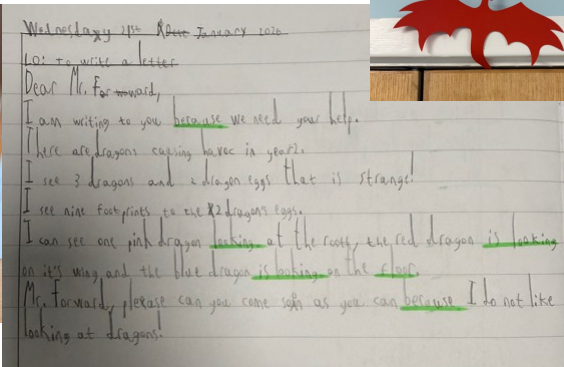 Wednesday 21st January 2026
LO: to write a letter
Dear Mr. Forward,
I am writing to you because we need your help.
There are dragons causing havoc in year 2.
I see 3 dragons and 2 dragon eggs that is strange!
I see nine footprints to the 2 dragons eggs.
I can see one pink dragon looking at the roof, the red dragon is looking
on it's wing and the blue dragon is looking on the floor.
Mr. Forward, please can you come soon as you can because I do not like
looking at dragons!